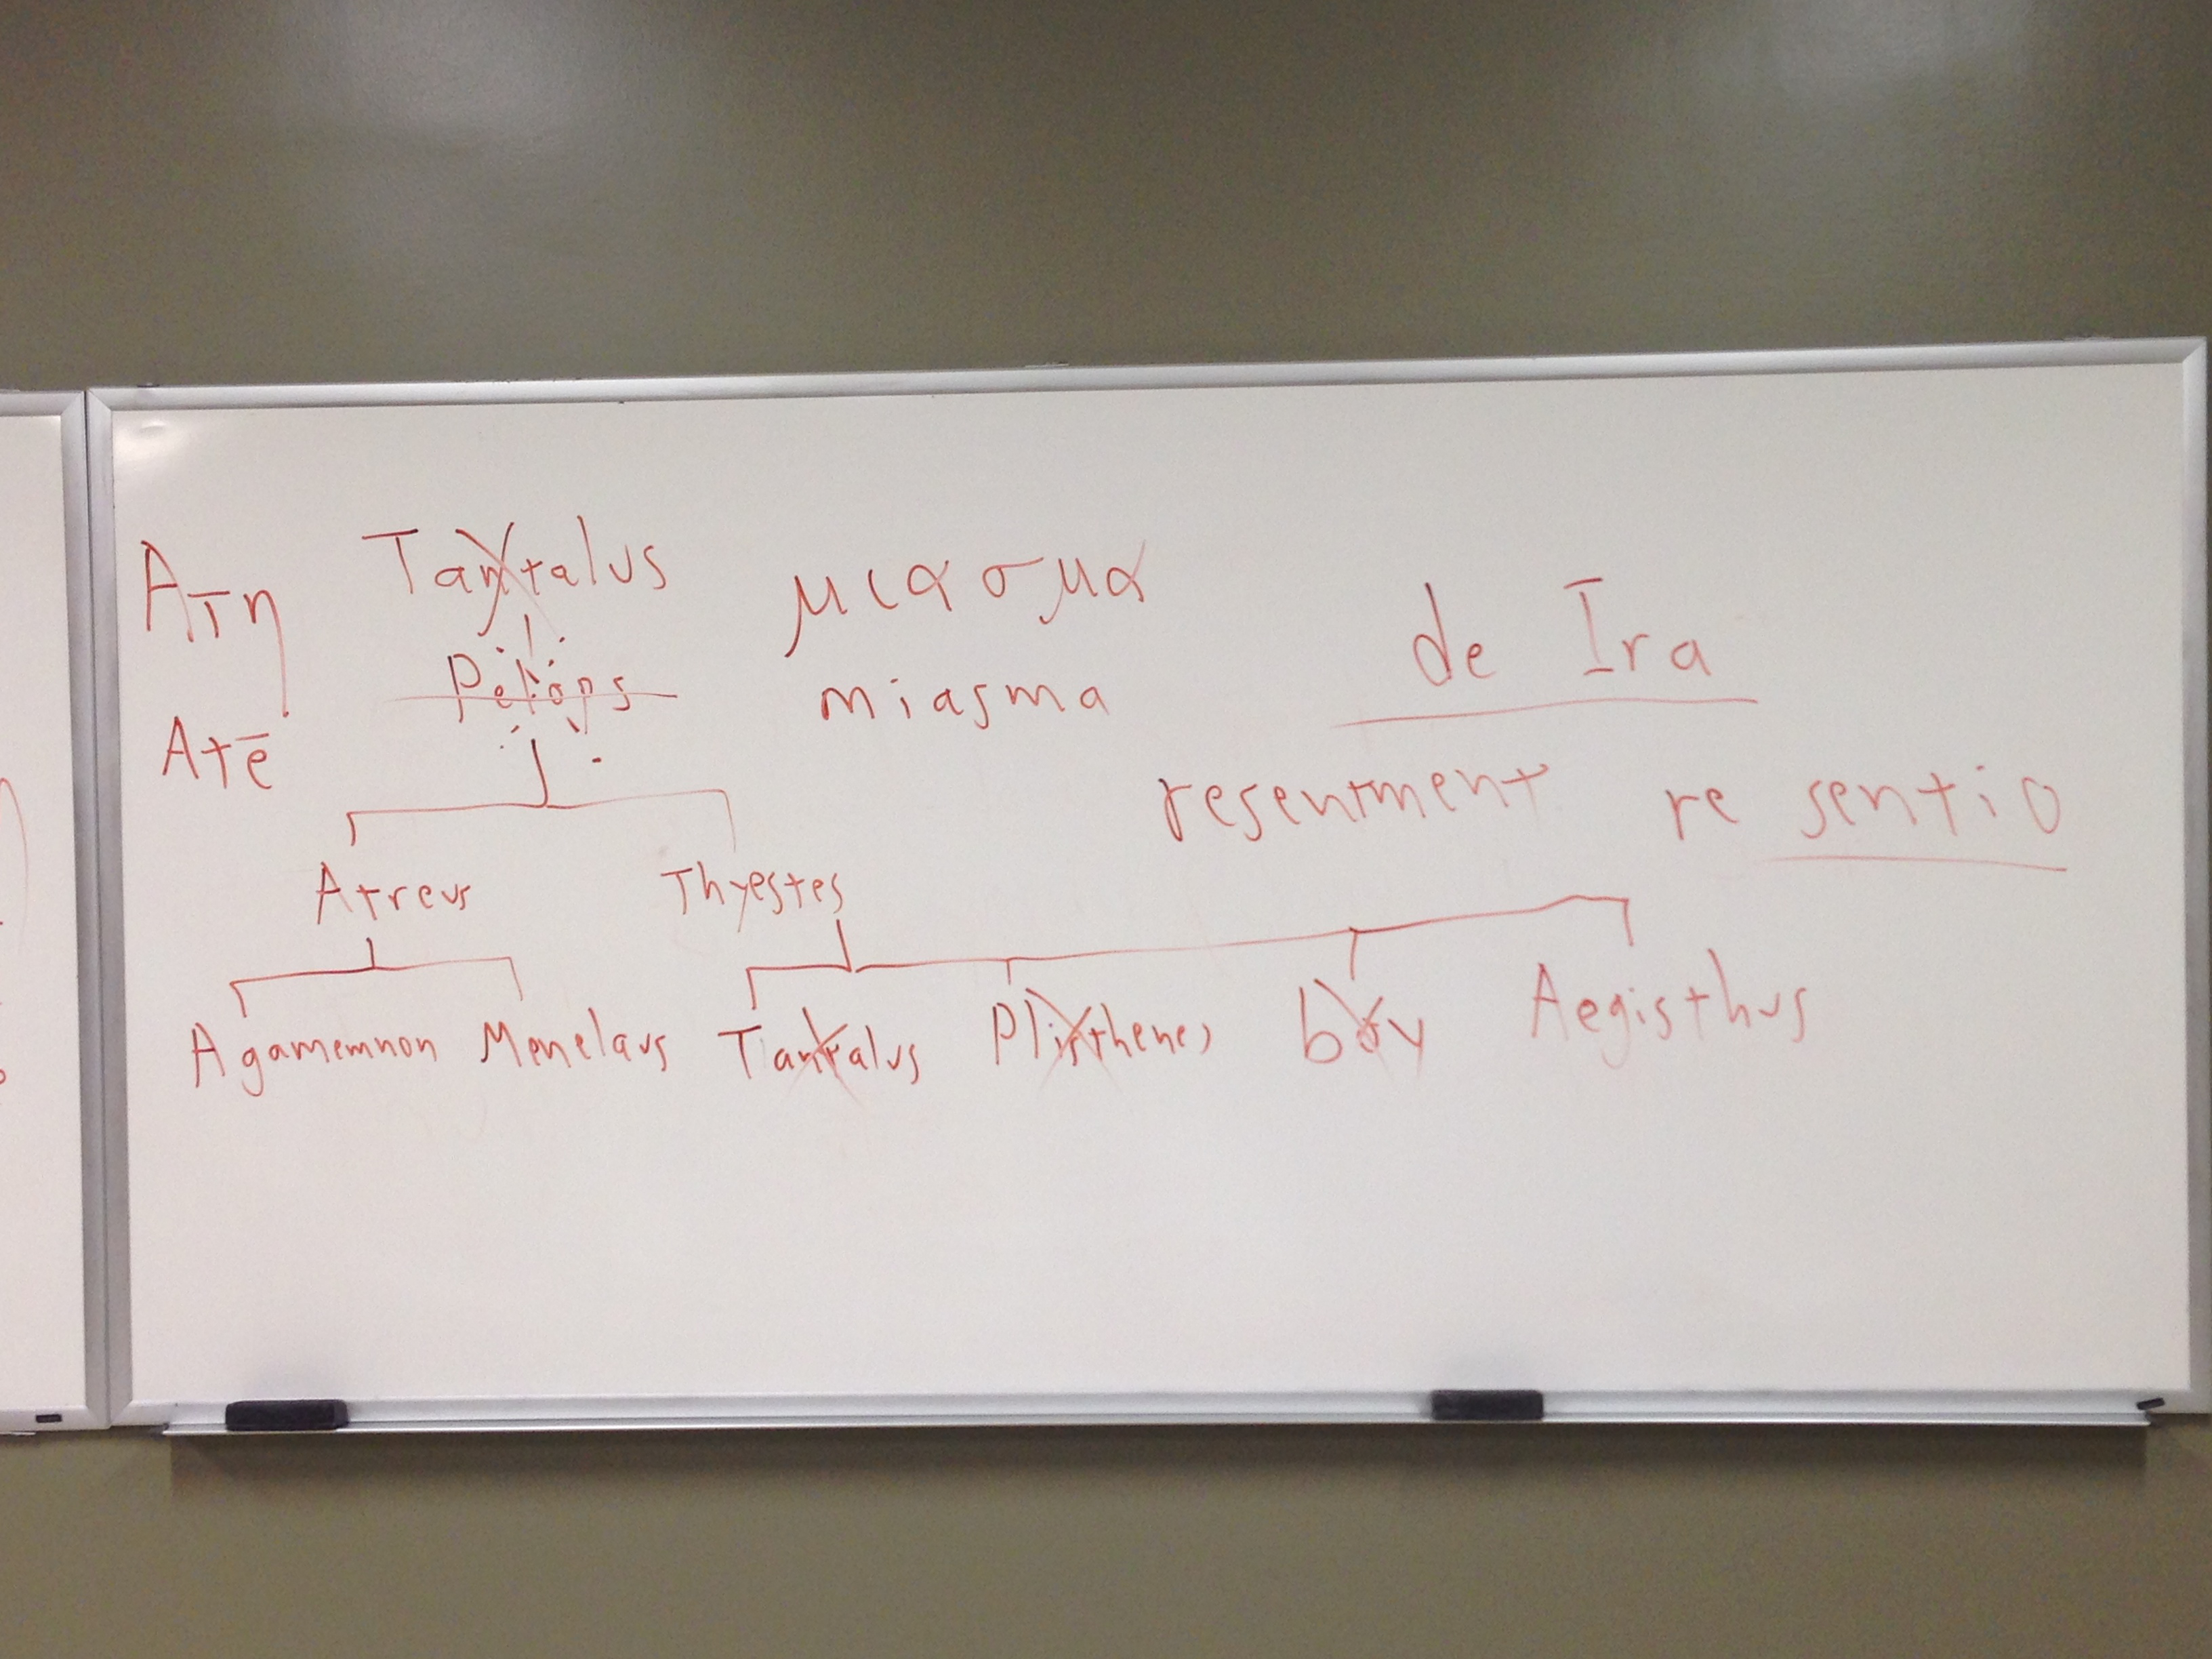 Ατη Tantalus μιασμα de Ira
Pelops miasma
Atē resentment re sentio
Atreus Thyestes
Agamemnon Menelaus Tantalus Plisthenes boy Aegisthus